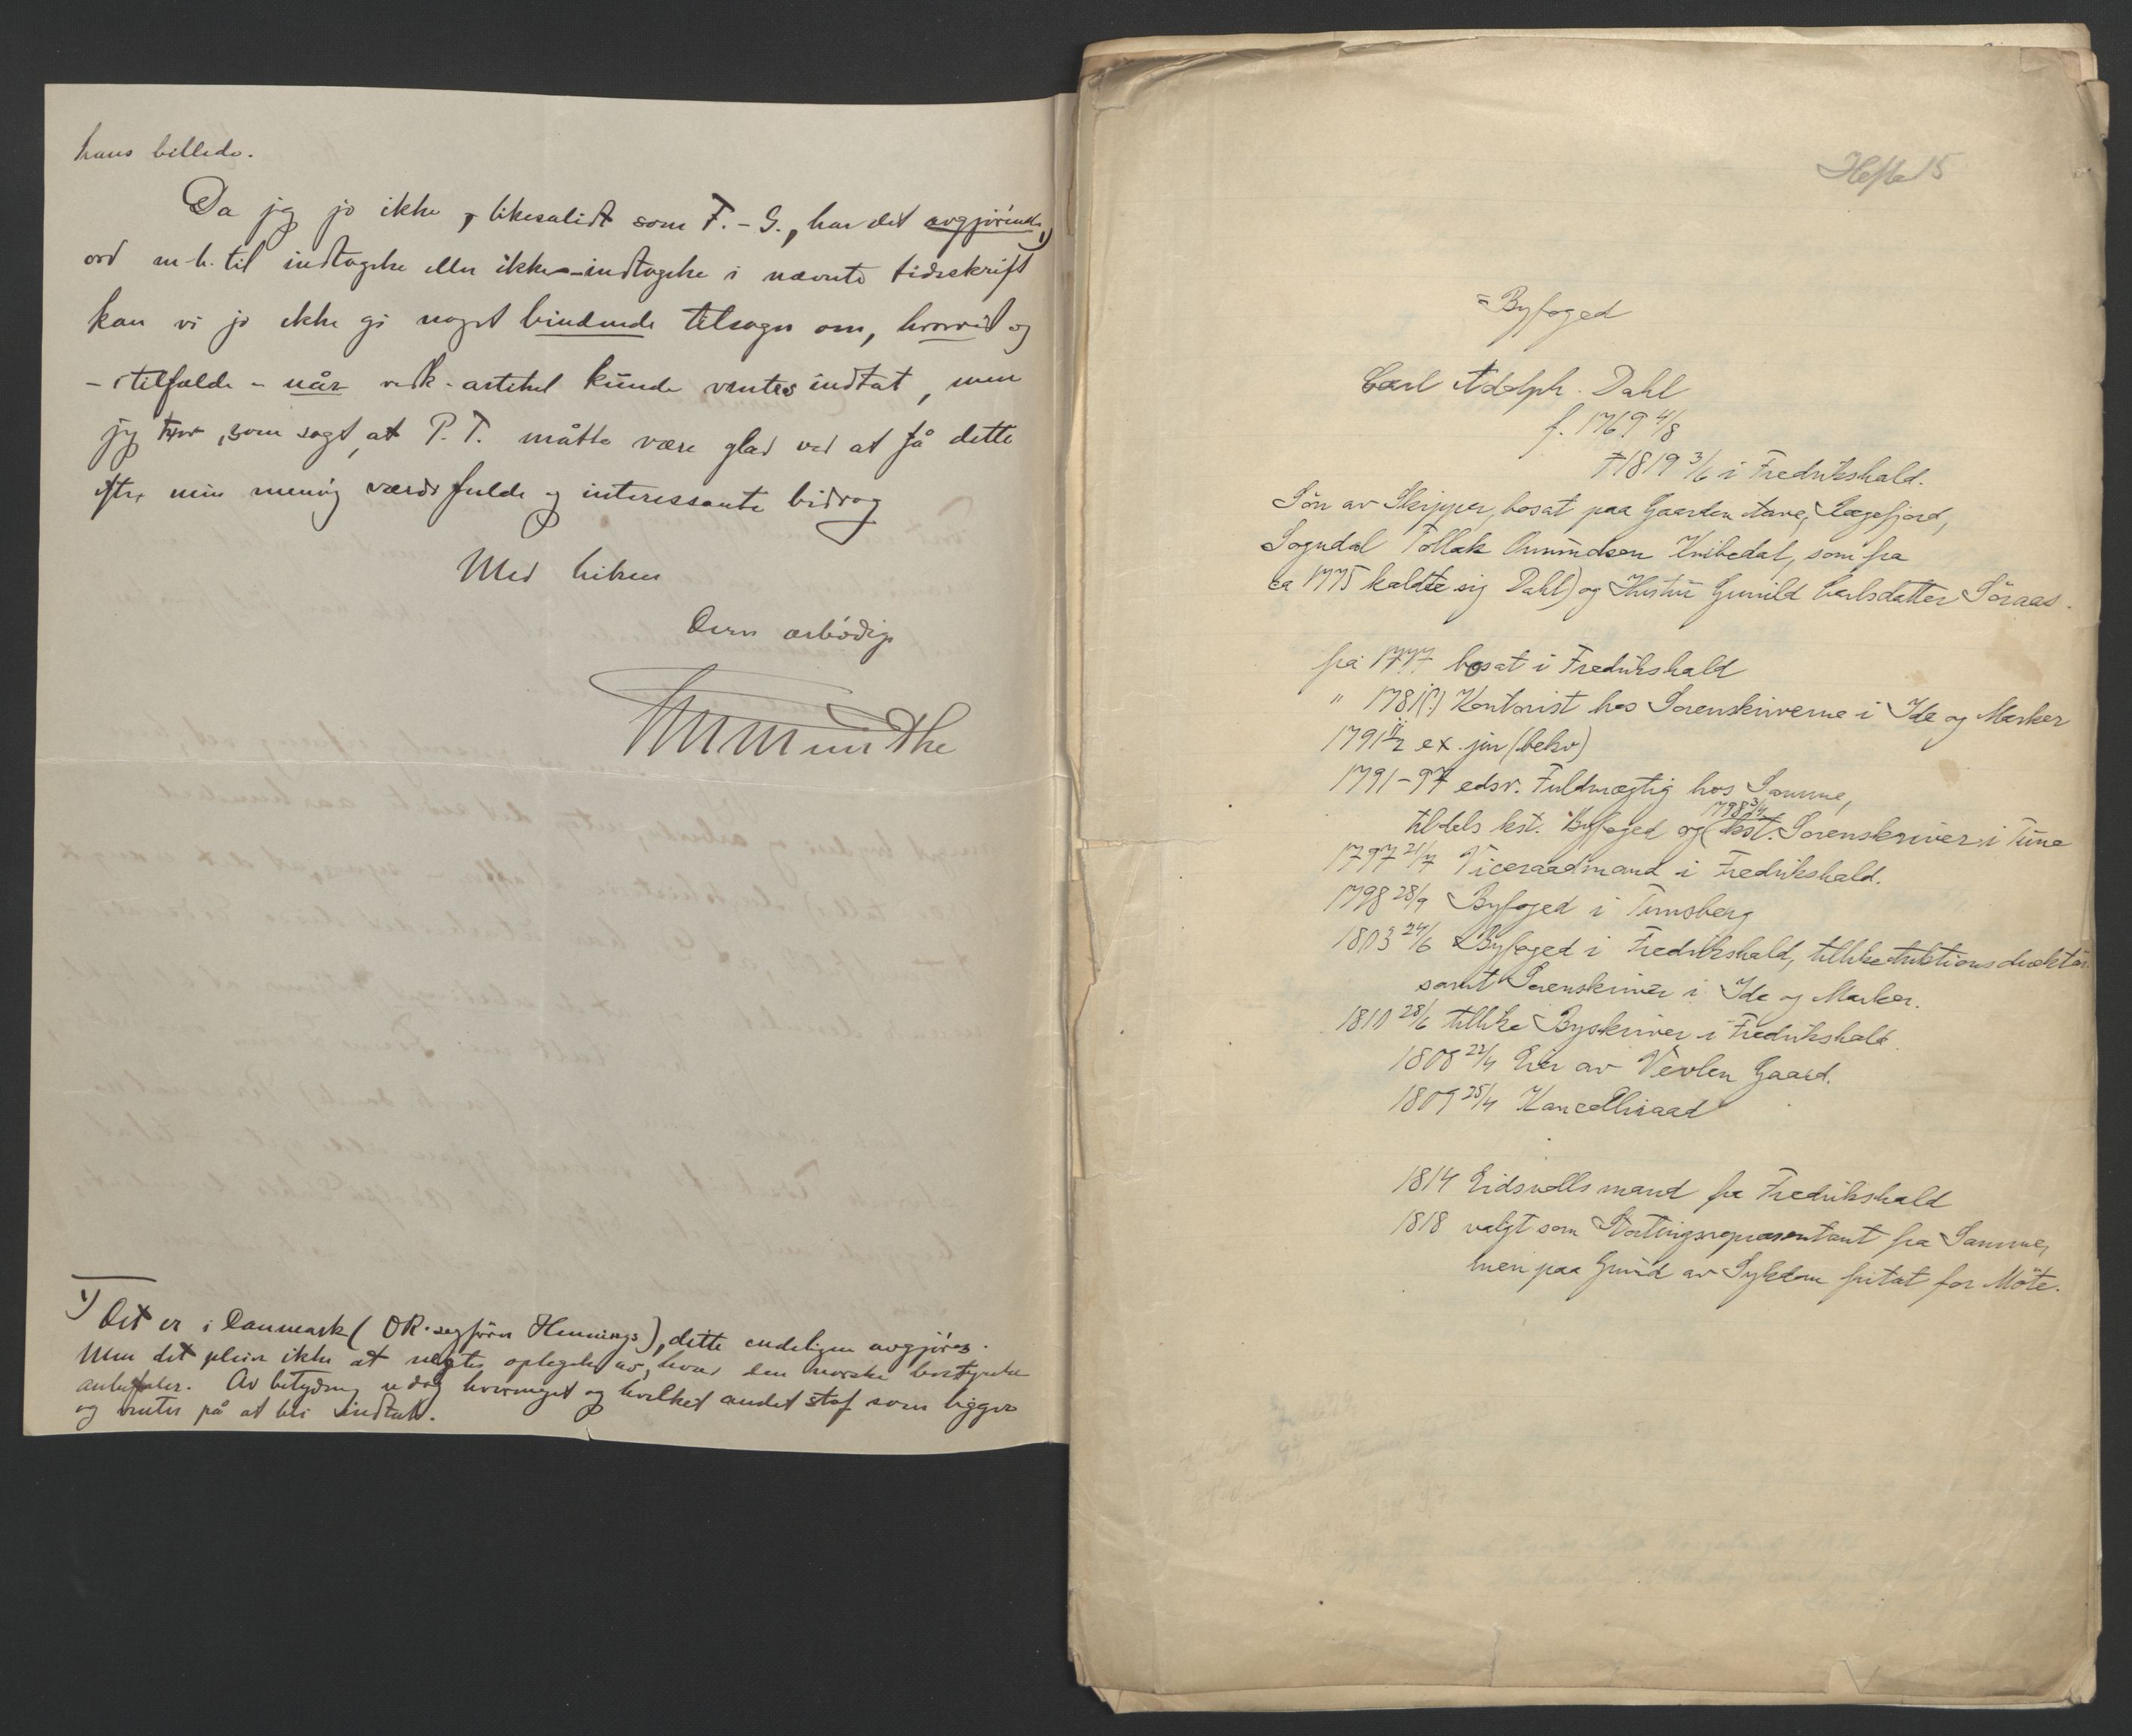 hans billede.
Da jeg jo ikke, likesålidt som F.-G., har det avgjörende 1)
ord m.h. til indtagelse eller ikke-indtagelse i nævnte tidsskrift
kan vi jo ikke gi noget bindende tilsagn om, hvorvid og
- i tilfælde - når vedk. artikel kunde ventes indtat, men
jeg tror, som sagt, at P. T. måtte være glad ved at få dette
efter min mening værdifulde og interessante bidrag
Med hilsen
Deres ærbödige
Munthe
1) Det er i Danmark (OR.sagförer Hennings), dette endeligen avgjöres.
Men det pleier ikke at negtes optagelse av, hvad den norske bestyrelse
anbefaler. Av betydning er dog hvormeget og hvilket andet stof som ligger
og venter på at bli indtat.
Hefte 15
Byfoged
Carl Adolph Dahl
f. 1769 4/8
† 1819 3/6 i Fredrikshald.
Sön av Skipper, bosat paa Gaarden Aave, Aagefjord,
Sogndal Tollak Omundsen Knibedal, som fra
ca 1775 kaldte sig Dahl) og Hustru Gunild Carlsdatter Söraas.
fra 1777 bosat i Fredrikshald
" 1781(?) Kontorist hos Sorenskriverne i Ide og Marker
1791 11/2 ex. jur (bekv)
1791-97 edsv. Fuldmægtig hos Samme,
tildels kst. Byfoged og (1798 3/4 kst. Sorenskriver i Tune
1797 21/7 Viceraadmand i Fredrikshald.
1798 28/9 Byfoged i Tunsberg
1803 24/6 Byfoged i Fredrikshald, tillike Auktionsdirektör
samt Sorenskriver i Ide og Marker.
1810 28/6 tillike Byskriver i Fredrikshald.
1808 22/4 Eier av Vevlen Gaard.
1809 25/4 Kancelliraad
1814 Eidsvollsmand fra Fredrikshald
1818 valgt som Stortingsrepræsentant fra Samme,
men paa Grund av Sykdom fritat for Möte.